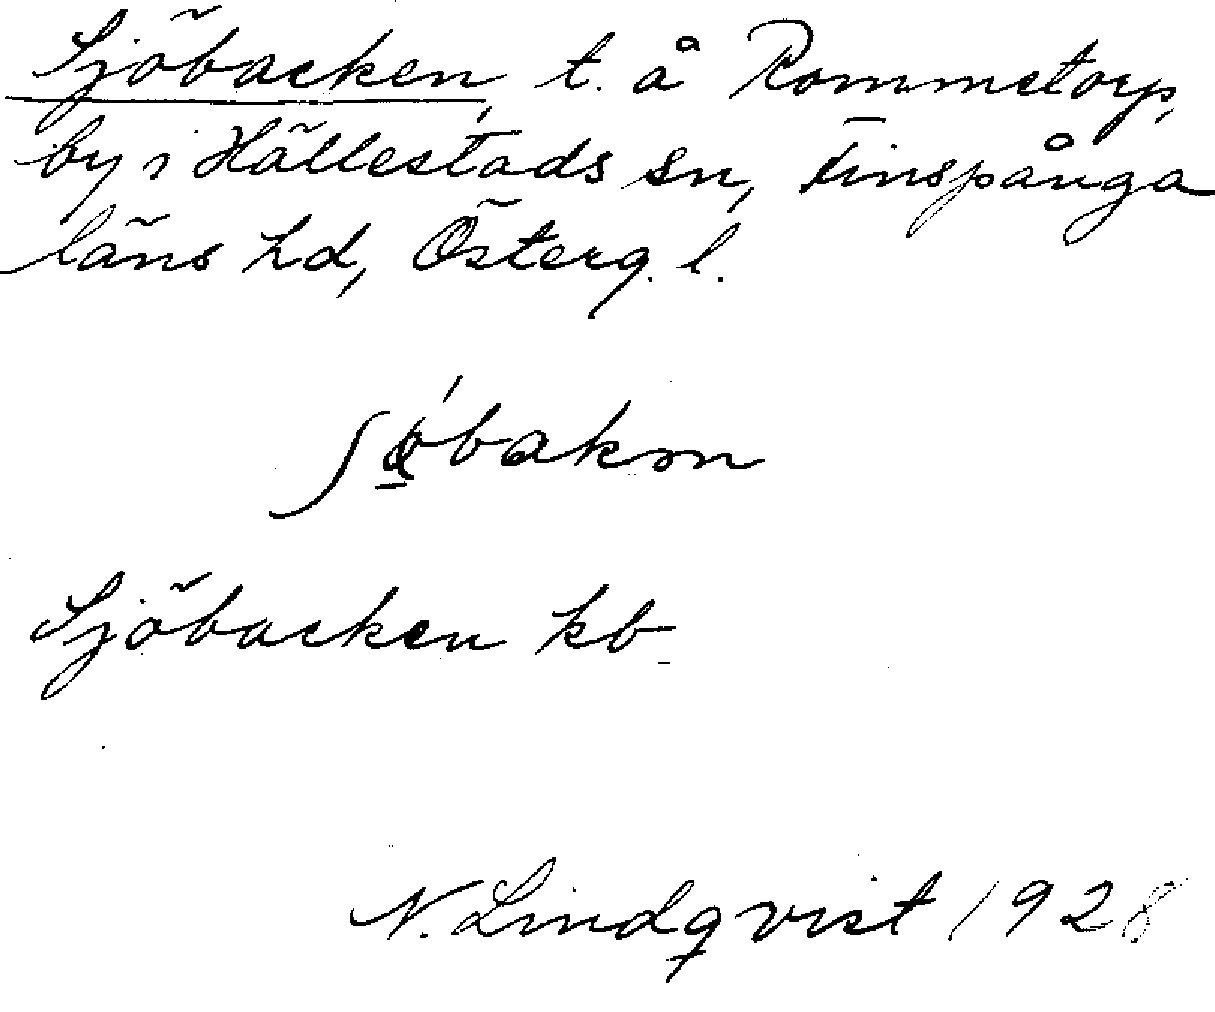 Sjöbacken, t. å Rommetorp,
by i Hällestads sn, Finspånga
läns hd, Österg. l.
Sjöbacken kb
N. Lindqvist 1928